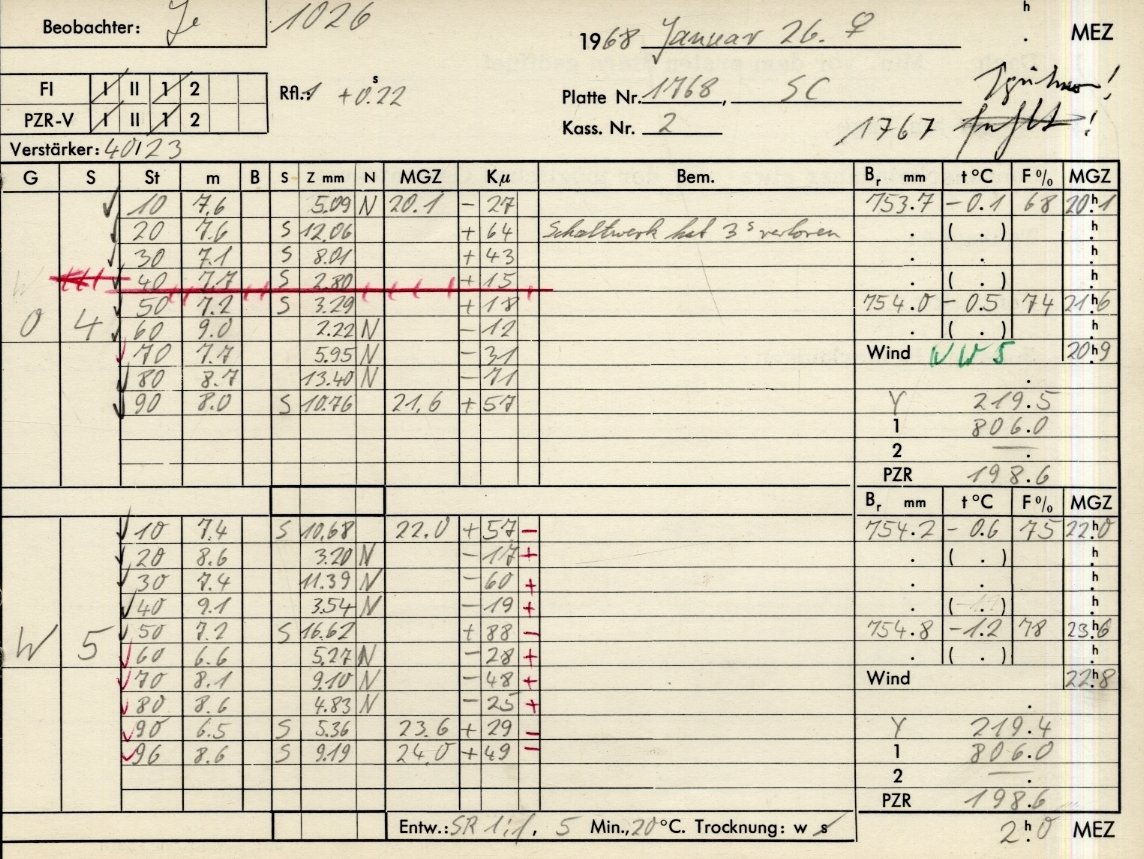 Beobachter: Je 1026
h
1968 Januar 26. ♀ . MEZ
FI I II 1 2
PZR-V I II 1 2
Rfl.: +0.22 s
Platte Nr. 1768, SC
Kass. Nr. 2 1767 fehlt!
Verstärker: 40123
G S St m B S Z mm N MGZ Kμ Bem. Br mm t °C F % MGZ
10 7.6 5.09 N 20.1 - 27 753.7 -0.1 68 20h1
20 7.6 S 12.06 + 64 Schaltwerk hat 3s verloren . ( . ) h
30 7.1 S 8.01 + 43 . . h
40 7.7 S 2.80 + 15 . ( . ) h
50 7.2 S 3.29 + 18 754.0 -0.5 74 21h6
O 4 60 9.0 2.22 N - 12 . ( . ) h
70 7.7 5.95 N - 31 Wind NW 5 20h9
80 8.7 13.40 N - 71 .
90 8.0 S 10.76 21.6 + 57 Y 219.5
1 806.0
2 — .
PZR 198.6
Br mm t °C F % MGZ
10 7.4 S 10.68 22.0 + 57 - 754.2 -0.6 75 22h0
20 8.6 3.20 N - 17 + . ( . ) h
30 7.4 11.39 N - 60 + . . h
40 9.1 3.54 N - 19 + . ( . ) h
W 5 50 7.2 S 16.62 + 88 - 754.8 -1.2 78 23h6
60 6.6 5.27 N - 28 + . ( . ) h
70 8.1 9.10 N - 48 + Wind 22h8
80 8.6 4.83 N - 25 + .
90 6.5 S 5.36 23.6 + 29 - Y 219.4
96 8.6 S 9.19 24.0 + 49 - 1 806.0
2 — .
PZR 198.6
Entw.: SR 1:1, 5 Min., 20 °C. Trocknung: w s 2h0 MEZ